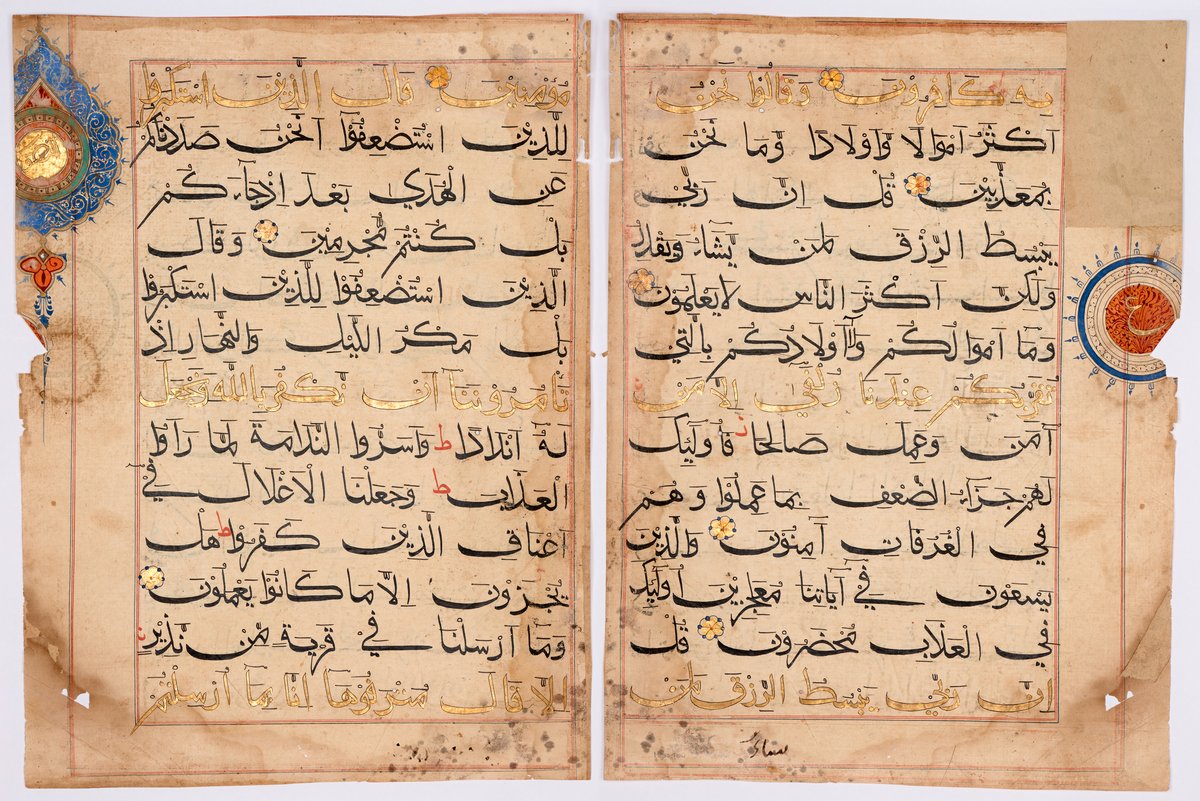 مُؤْمِنِينَ قَالَ الَّذِينَ اسْتَكْبَرُوا
لِلَّذِينَ اسْتُضْعِفُوآ اَنَحْنُ صَدَدْنَاكُمْ
عَنِ الْهُدَي بَعْدَ اِذْجَاءَكُمْ
بَلْ كُنْتُمْ مُجْرِمِينَ وَقَالَ
الَّذِينَ اسْتُضْعِفُوا لِلَّذِينَ اسْتَكْبَرُوا
بَلْ مَكْرُ اللَّيْلِ وَالنَّهَارِ اِذْ
تَأْمُرُونَنَآ اَنْ نَكْفُرَ بِاللّٰهِ وَنَجْعَلَ
لَهُ اَنْدَادًا ط وَاَسَرُّوا النَّدَامَةَ لَمَّا رَاَوُا
الْعَذَابَ ط وَجَعَلْنَا الْاَغْلَالَ فِي
اَعْنَاقِ الَّذِينَ كَفَرُوا ط هَلْ
يُجْزَوْنَ اِلَّا مَا كَانُوا يَعْمَلُونَ
وَمَآ اَرْسَلْنَا فِي قَرْيَةٍ مِنْ نَذِيرٍ
اِلَّا قَالَ مُتْرَفُوهَا اِنَّا بِمَآ اُرْسِلْتُمْ
بِهِ كَافِرُونَ وَقَالُوا نَحْنُ
اَكْثَرُ اَمْوَالًا وَاَوْلَادًا وَمَا نَحْنُ
بِمُعَذَّبِينَ قُلْ اِنَّ رَبِّي
يَبْسُطُ الرِّزْقَ لِمَنْ يَشَاءُ وَيَقْدِرُ
وَلٰكِنَّ اَكْثَرَ النَّاسِ لَا يَعْلَمُونَ
وَمَآ اَمْوَالُكُمْ وَلَآ اَوْلَادُكُمْ بِالَّتِي
تُقَرِّبُكُمْ عِنْدَنَا زُلْفَي اِلَّا مَنْ
آمَنَ وَعَمِلَ صَالِحًا ز فَاُولٰئِكَ
لَهُمْ جَزَاءُ الضِّعْفِ بِمَا عَمِلُوا وَهُمْ
فِي الْغُرُفَاتِ آمِنُونَ وَالَّذِينَ
يَسْعَوْنَ فِي آيَاتِنَا مُعَاجِزِينَ اُولٰئِكَ
فِي الْعَذَابِ مُحْضَرُونَ قُلْ
اِنَّ رَبِّي يَبْسُطُ الرِّزْقَ لِمَنْ
ع